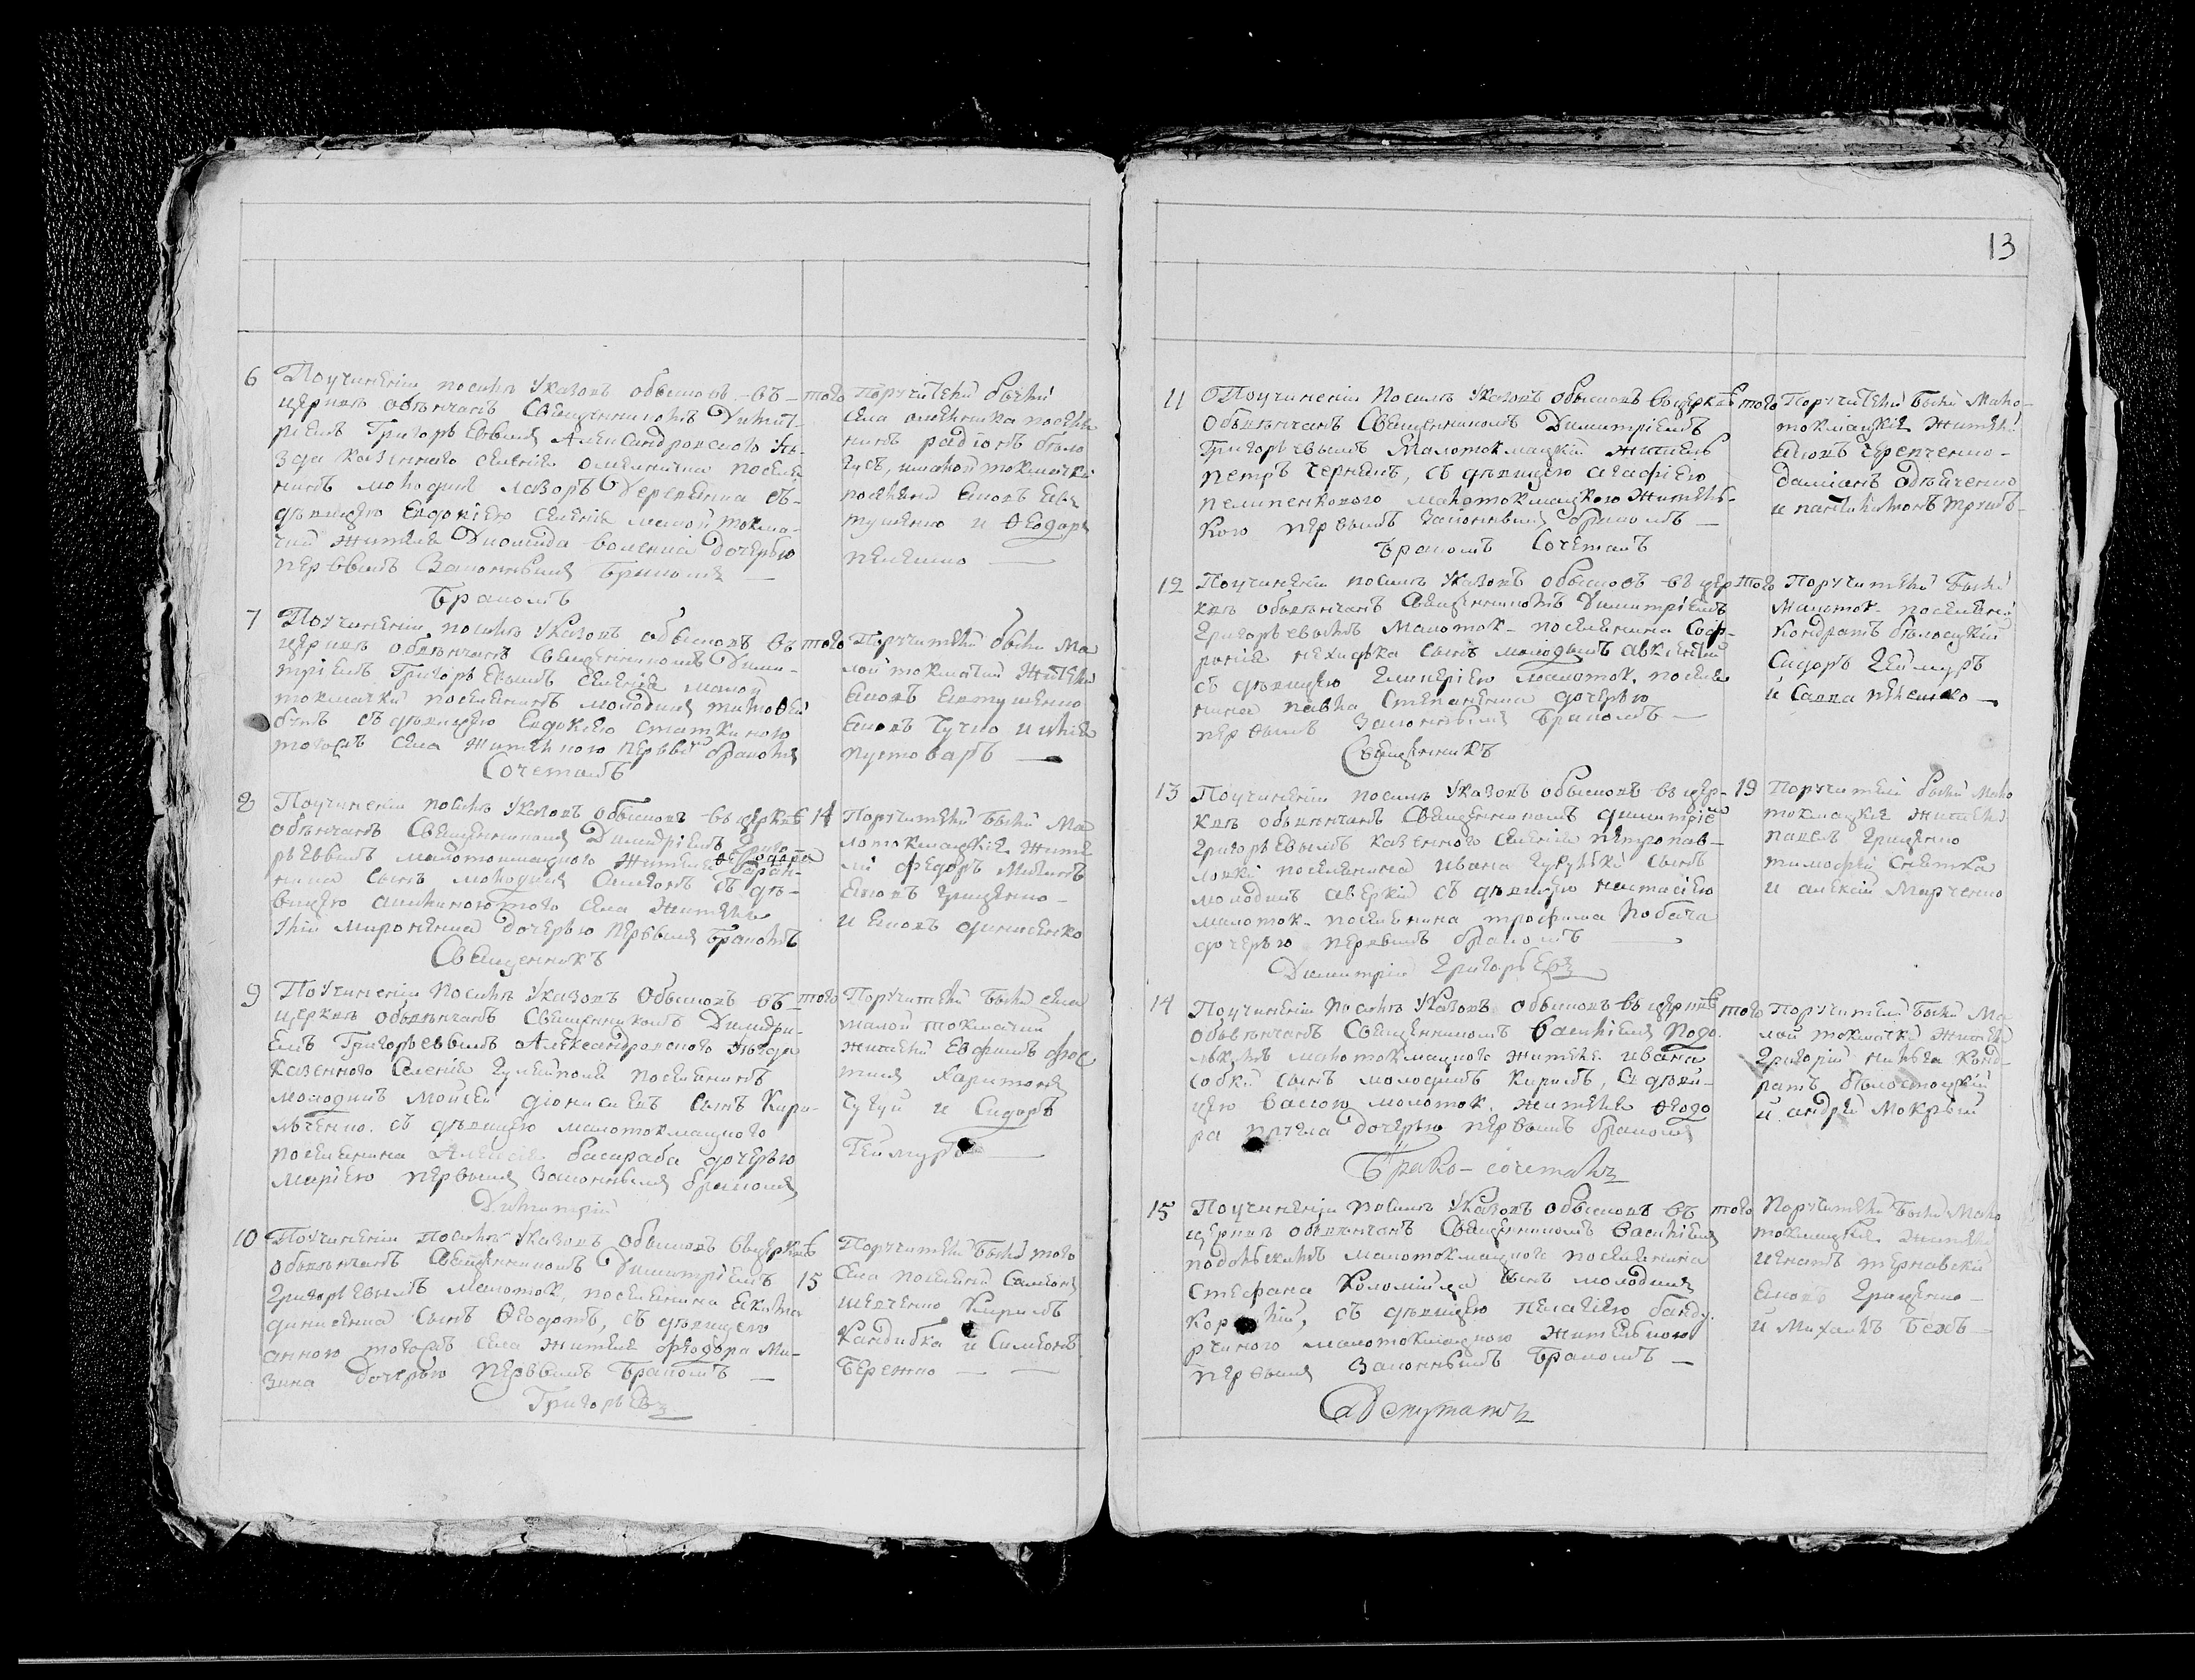 13
6
Поучинении посилѣ Указовъ обысковъ въ
церквѣ обвѣнчанъ Священникомъ Димит-
ріемъ Григорьевымъ Александровского Уѣ-
зда казенного селенія
нинъ молодикъ лазоръ Деревянка съ
дѣвицею Евдокіею селенія малой токма-
чки жителя Диомида дочерью
первымъ Законнымъ бракомъ —
Бракомъ
того
Поручители были
села поселя-
нинъ радіонъ бѣло
усъ, малой токмачки
поселяни Яковъ Евъ
тушенко и Ѳеодоръ
пелешко —
7
Поучинении посилѣ Указовъ обысковъ въ
церквѣ обвѣнчанъ Священникомъ Дими-
тріемъ Григорьевымъ селенія малой
токмачки поселянинъ молодикъ тимоѳей
съ дѣвицею Евдокіею
тогожъ села жителкою первымъ бракомъ
Сочеталъ
того
Поручители были Ма
лой токмачки Жители
Яковъ Евтушенко
Яковъ Чучко и
пустоваръ —
8
Поучинении посилѣ Указовъ обысковъ въ церквѣ
обвѣнчанъ Священникомъ Димидріемъ Григо
рьевымъ малотокмацкого жителя Ѳеодора
сынъ молодикъ Симеонъ съ дѣ-
вицею того села жителя
мироненка дочерью первымъ бракомъ
Священникъ
14
Поручители были Ма
лотокмацкіе жите
ли федоръ Мизинъ
Яковъ Грищенко —
и Яковъ денисенко
9
Поучинении посилѣ Указовъ Обысковъ въ
церквѣ обвѣнчанъ Священникомъ Димидрі-
емъ Григорьевымъ Александровского Уѣзда
казенного Селенія Гуляйполя поселянинъ
молодикъ Мойсей дионисіевъ сынъ Кири-
льченко. съ дѣвицею малотокмацкого
поселянина Алексѣя басараба дочерью
маріею первымъ Законнымъ бракомъ
Димитрій
того
Поручители были села
малой токмачки
жители Ефимъ
Харитонъ
Чугуй и Сидоръ
Геймуръ —
10
Поучинении посилѣ Указовъ обысковъ въ церквѣ
обвѣнчанъ Священникомъ Димитріемъ
Григорьевымъ малоток, поселянина Екима
динисенка сынъ Ѳеодотъ, съ дѣвицею
анною тогожъ села жителя феодора Ми-
зина дочерью первымъ бракомъ —
Григорьевъ
15
Поручители были того
села поселяни Симеонъ
шевченко Кирилъ
Кандибка и Симеонъ
Бережно — —
11
Поучинении посилѣ Указовъ обысковъ въ церквѣ
Обвѣнчанъ Священникомъ Димитріемъ
Григорьевымъ Малотокмацкій житель
петръ чернякъ, съ дѣвицею агафіею
пелипенковою малотокмацкою жител-
кою первымъ законнымъ бракомъ —
Бракомъ Сочеталъ
того
Поручители были Мало-
токмацкіе жители
Яковъ черепченко —
даміянъ
и пантилимонъ
12
Поучинении посилѣ Указовъ обысковъ въ цер
квѣ обвѣнчанъ Священникомъ Димитріемъ
Григорьевымъ малоток- поселянина Соф-
ронія сынъ молодикъ авксентій
съ дѣвицею гликеріею малоток. поселя
нина павла Степаненка дочерью
первымъ Законнымъ бракомъ —
Священникъ
того
Поручители были
Малоток- поселяни
Кондратъ бѣлоцкій
Сидоръ Геймуръ
и Савва пелешко —
13
Поучинении посилѣ Указовъ обысковъ въ цер-
квѣ обвѣнчанъ Священникомъ димитріе
Григорьевымъ казенного селенія петропав-
ловки поселянина ивана сынъ
молодикъ аверкій съ дѣвицею настасіею
малоток- поселянина трофима
дочерью первымъ бракомъ —
Димитрій Григорьевъ
19
Поручители были мало
токмацкіе жители
павелъ Грищенко
тимофѣй снѣтка
и алексѣй Марченко
14
Поучинении посилѣ Указовъ обысковъ въ церквѣ
обвѣнчанъ Священникомъ Василіемъ Подо
льскимъ малотокмацкого жителя ивана
собки сынъ молодикъ Кирилъ, съ дѣви-
цею малоток. жителя Ѳеодо
ра дочерью первымъ бракомъ
Брако-сочеталъ
того
Поручители были Ма-
лой токмачки жители
Григорій Конд-
ратъ бѣлостоцкій
и андрей Мокрый
15
Поучинении посилѣ Указовъ обысковъ въ
церквѣ обвѣнчанъ Священникомъ Василіемъ
подольскимъ малотокмацкого поселянина
Стефана Коломійца сынъ молодикъ
съ дѣвицею пелагіею банду
рчиною малотокмацкою жителькою
первымъ Законнымъ Бракомъ —
того
Поручители были Мало
токмацкіе жители
игнатъ тернавскій
Яковъ Грищенко —
и Михаилъ